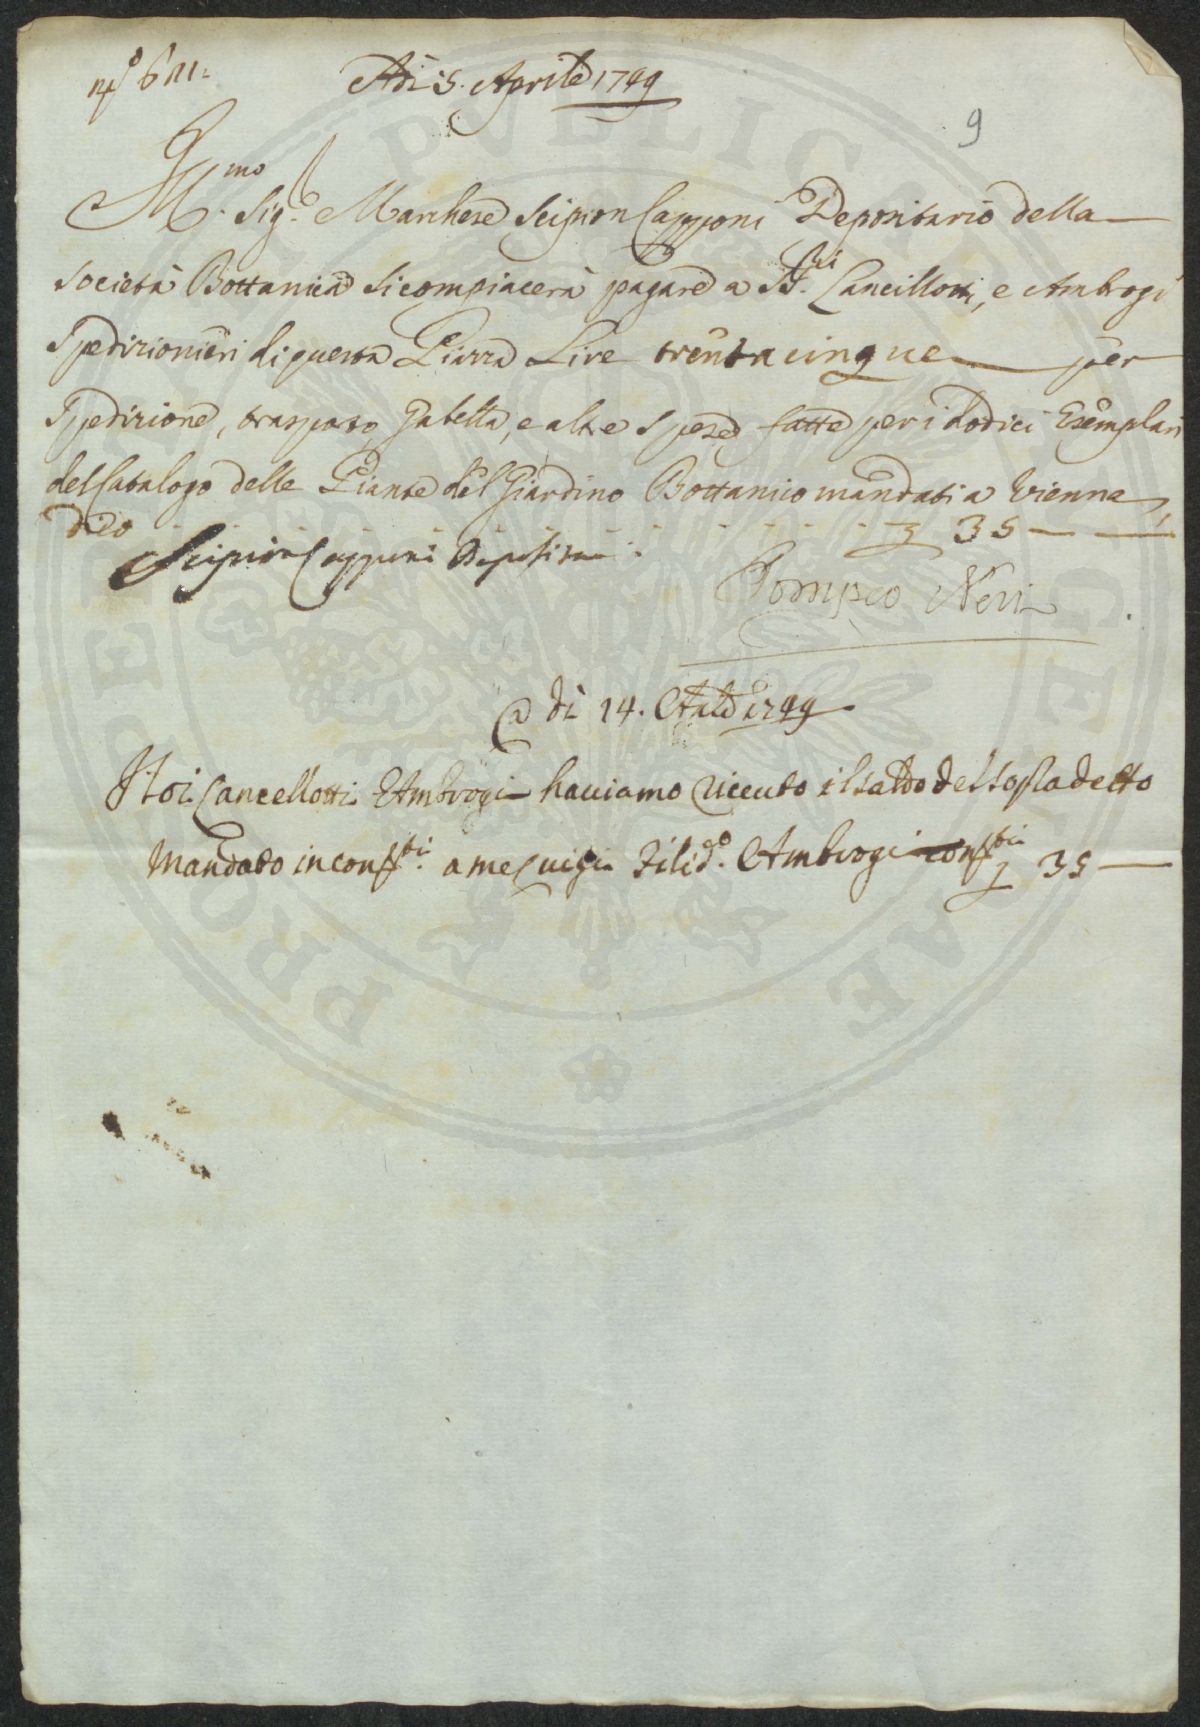 Adì 5. Aprile 1749
9
Ill.mo Sig.r Marchese Scipion Capponi Depositario della
Società Bottanica si compiacerà pagare a SS.ri Lancillotti, e Ambrogi
Spedizionieri di questa Piazza Lire trentacinque per
Spedizione, trasporto, Gabella, e altre Spese fatte per i dodici Esemplari
del Catalogo delle Piante del Giardino Bottanico mandati a Vienna,
dico 35
Scipion Capponi Depositario
Pompeo Neri
a dì 14. Aple 1749
Noi Lancellotti E Ambrogi haviamo riceuto il saldo del sopradetto
Mandato in cont.ti a me Luigi Ambrogi cont.ti 35
PROPTER PVBLICAE